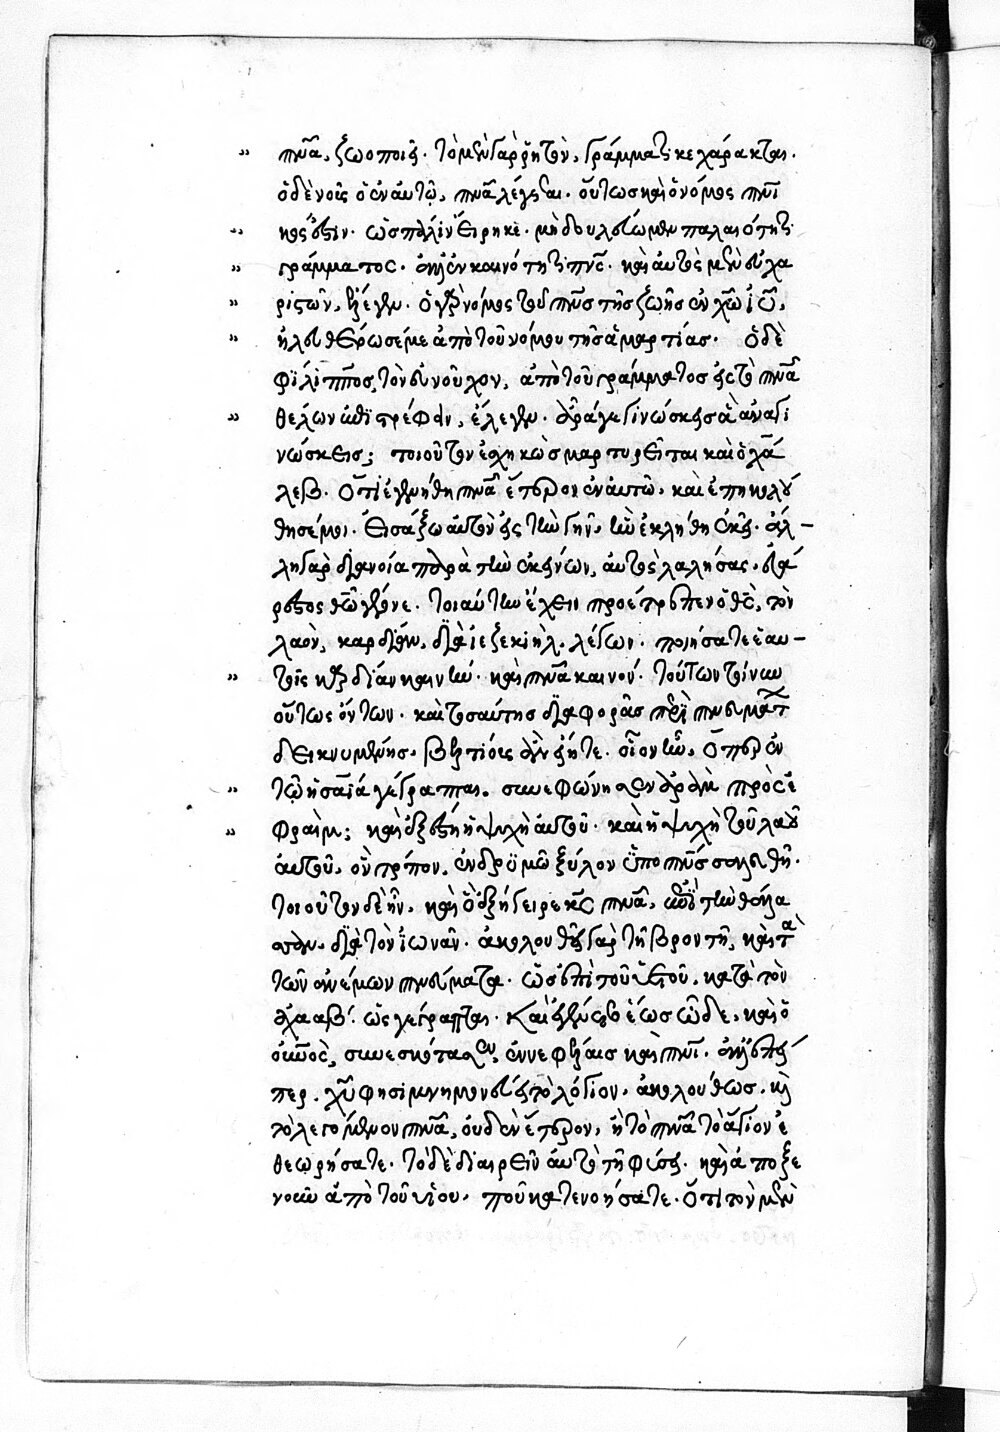 πνα, ζωοποιεῖ· τὸ μὲν γὰρ ῥητὸν, γράμματι κεχάρακται·
ὁ δὲ νοῦς ὁ ἐν αὐτῷ, πνα λέγεται. οὕτως καὶ ὁ νόμος πνι
κός ἐστιν· ὡς πάλιν εἴρηκε· μὴ δουλεύωμεν παλαιότητι
γράμματος· ἀλλ' ἐν καινότητι πνς· καὶ αὐτὸς μὲν εὐχα
ριστῶν, ἔλεγεν· ὁ γὰρ νόμος τοῦ πνς τῆς ζωῆς ἐν χω ιυ,
ἠλευθέρωσέ με ἀπὸ τοῦ νόμου τῆς ἁμαρτίας. ὁ δὲ
φίλιππος, τὸν εὐνοῦχον, ἀπὸ τοῦ γράμματος εἰς τὸ πνα
θέλων ἐπιστρέφειν, ἔλεγεν· ἆρά γε γινώσκεις ἃ ἀναγι
νώσκεις; τοιοῦτον ἐσχηκὼς μαρτυρεῖται καὶ ὁ χά
λεβ. ὅτι ἐγενήθη πνα ἕτερον ἐν αὐτῷ. καὶ ἐπηκολού
θησέ μοι· εἰσάξω αὐτὸν εἰς τὴν γῆν, ἣν ἐκλήθη ἐκεῖ· ἀλ–
λη γὰρ διανοία παρὰ τὴν ἐκείνων, αὐτὸς λαλήσας, εὐά
ρεστος θῶ γέγονε. τοιαύτην ἔχειν προέτρεπεν ὁ θς, τὸν
λαὸν, καρδίαν, διὰ ἰεζεκιὴλ λέγων· ποιήσατε ἑαυ–
τοῖς καρδίαν καινήν· καὶ πνα καινόν. τούτων τοίνυν
οὕτως ὄντων· καὶ τοσαύτης διαφορᾶς περὶ πνευμάτων
δεικνυμένης. βλητέος
τῷ ἠσαΐα γέγραπται. συνεφώνησεν ἀρὰμ πρὸς ἐ
φραίμ; καὶ ἐξέστη ἡ ψυχὴ αὐτοῦ· καὶ ἡ ψυχὴ τοῦ λαοῦ
αὐτοῦ, ὃν τρόπον, ἐν δρυμῷ ξύλον ὑπὸ πνς σαλευθῇ.
τοιοῦτον δὲ ἦν, καὶ ὃ ἐξήγειρε κς πνα, ἐπὶ τὴν θάλα
σσαν, διὰ τὸν ἰωνᾶν. ἀκολουθεῖ γὰρ τῇ βροντῇ, καὶ τὰ
τῶν ἀνέμων πνεύματα· ὡς ἐπὶ τοῦ ὑετοῦ, κατὰ τὸν
ἀχαὰβ ὡς γέγραπται. καὶ ἐγένετο ἕως ὧδε, καὶ ὁ
ουνος, συνεσκότασεν, ἐν νεφέλαις καὶ πνι. ἀλλ' ἐπεί
περ, χῦ φησὶ μνημονεύει τὸ λόγιον, ἀκολούθως, καὶ
τὸ λεγόμενον πνα, οὐδὲν ἕτερον, ἢ τὸ πνα τὸ ἅγιον ἐ
θεωρήσατε· τὸ δὲ διαιρεῖν αὐτὸ τῇ φύσει, καὶ ἀποξε
νοῦν ἀπὸ τοῦ υἱου, ποῦ κατενοήσατε. ὅτι τὸν μὲν